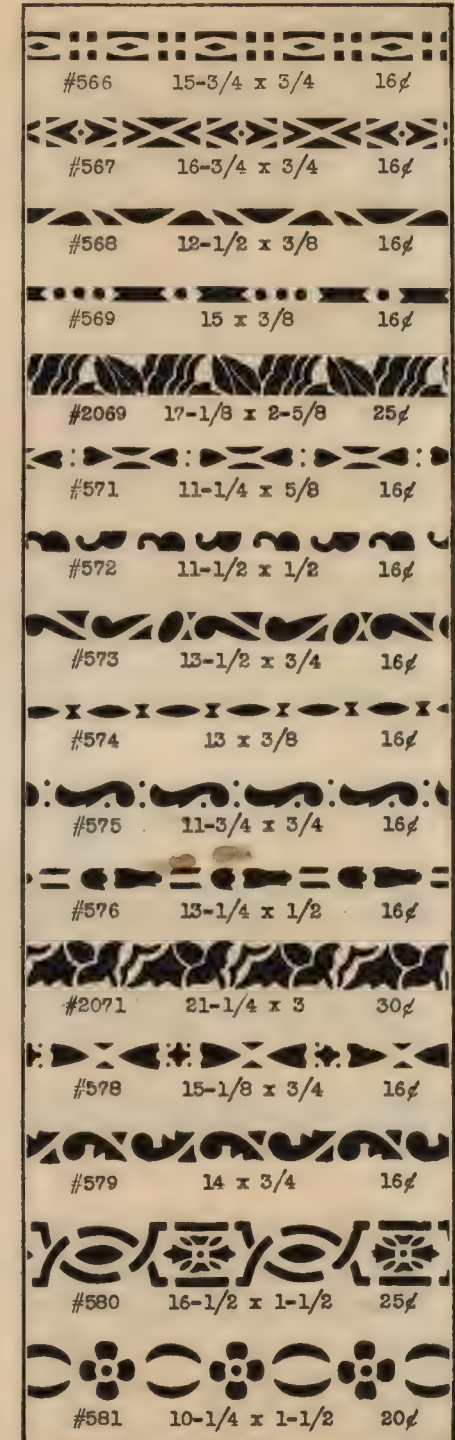 #566 15-3/4 x 3/4 16¢
#567 16-3/4 x 3/4 16¢
#568 12-1/2 x 3/8 16¢
#569 15 x 3/8 16¢
#2069 17-1/8 x 2-5/8 25¢
#571 11-1/4 x 5/8 16¢
#572 11-1/2 x 1/2 16¢
#573 13-1/2 x 3/4 16¢
#574 13 x 3/8 16¢
#575 11-3/4 x 3/4 16¢
#576 13-1/4 x 1/2 16¢
#2071 21-1/4 x 3 30¢
#578 15-1/8 x 3/4 16¢
#579 14 x 3/4 16¢
#580 16-1/2 x 1-1/2 25¢
#581 10-1/4 x 1-1/2 20¢